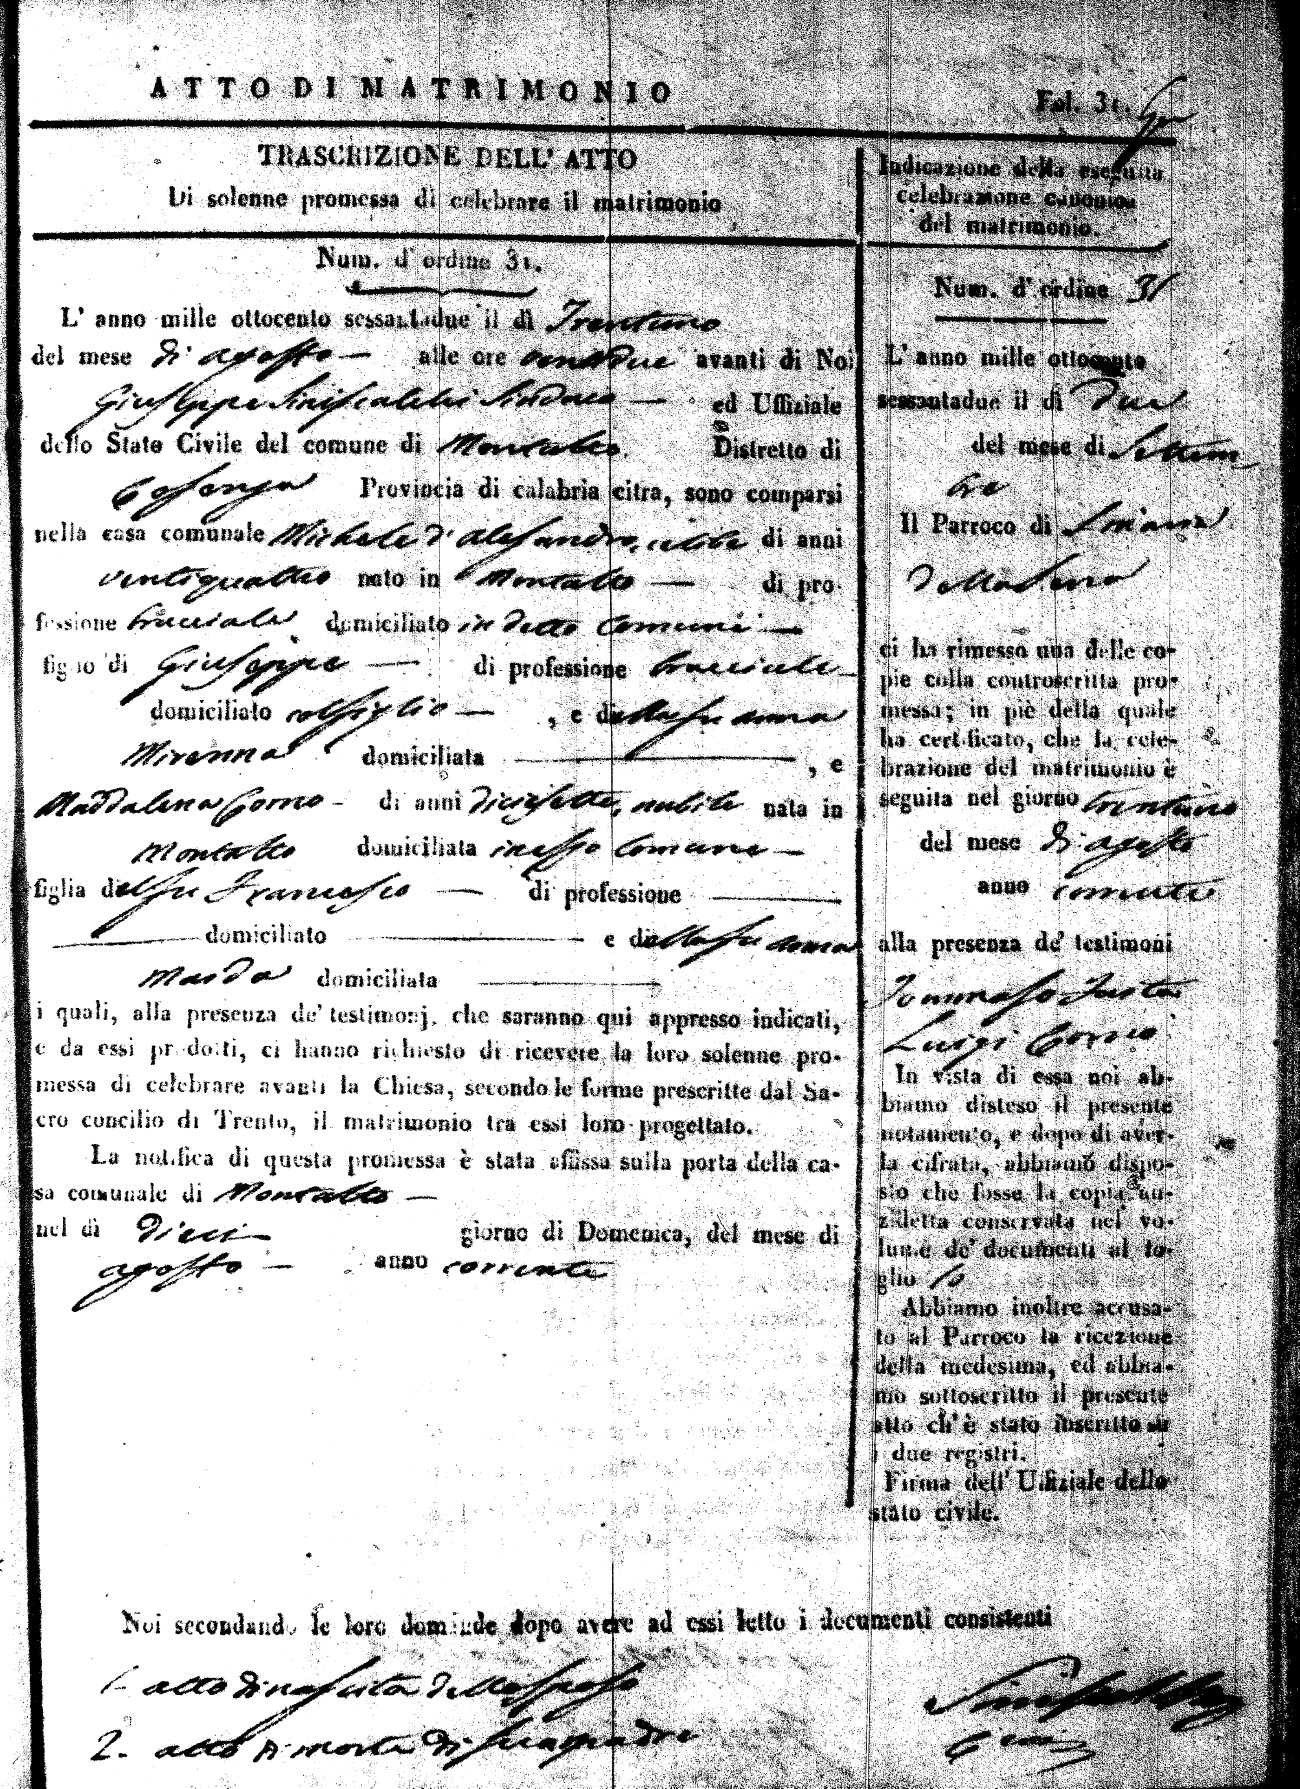 ATTO DI MATRIMONIO
Fol. 31.
TRASCRIZIONE DELL' ATTO
Di solenne promessa di celebrare il matrimonio
Num. d' ordine 31.
L' anno mille ottocento sessantadue il dì Trentuno
del mese di agosto — alle ore ventidue avanti di Noi
Giuseppe Siniscalchi Sindaco — ed Uffiziale
dello Stato Civile del comune di Montalto. Distretto di
Cosenza Provincia di calabria citra, sono comparsi
nella casa comunale Michele d'Alesandro, celibe di anni
ventiquattro nato in Montalto — di pro-
fessione bracciale domiciliato in detto Comune —
figlio di Giuseppe — di professione bracciale —
domiciliato col figlio — , e della fu Anna
Mirenna domiciliata — , e
Maddalena Corno - di anni diciesette, nubile nata in
Montalto domiciliata in esso Comune —
figlia del fu Francesco — di professione —
— domiciliato — e della fu Anna
domiciliata —
i quali, alla presenza de' testimonj, che saranno qui appresso indicati,
e da essi prodotti, ci hanno richiesto di ricevere la loro solenne pro-
messa di celebrare avanti la Chiesa, secondo le forme prescritte dal Sa-
cro concilio di Trento, il matrimonio tra essi loro progettato.
La notifica di questa promessa è stata affissa sulla porta della ca-
sa comunale di Montalto —
nel dì Dieci giorno di Domenica, del mese di
agosto — anno corrente
Noi secondando le loro dominde dopo avere ad essi letto i documenti consistenti
1. atto di nascita dello sposo
2. atto di morte di suo padre
Indicazione della eseguita
celebrazione canonica
del matrimonio.
Num. d' ordine 31
L' anno mille ottocento
sessantadue il dì Due
del mese di Settem
bre
Il Parroco di S. Maria
della Serra
ci ha rimesso una delle co-
pie colla controscritta pro-
messa; in piè della quale
ha certificato, che la cele-
brazione del matrimonio è
seguita nel giorno trentuno
del mese di agosto
anno corrente
alla presenza de' testimoni
Tommaso
Luigi Corno
In vista di essa noi ab-
biamo disteso il presente
notamento, e dopo di aver-
la cifrata, abbiamo dispo-
sto che fosse la copia an-
zidetta conservata nel vo-
lume de' documenti al fo-
glio 10
Abbiamo inoltre accusa-
to al Parroco la ricezione
della medesima, ed abbia-
mo sottoscritto il presente
atto ch' è stato inscritto su
i due registri.
Firma dell' Uffiziale dello
stato civile.